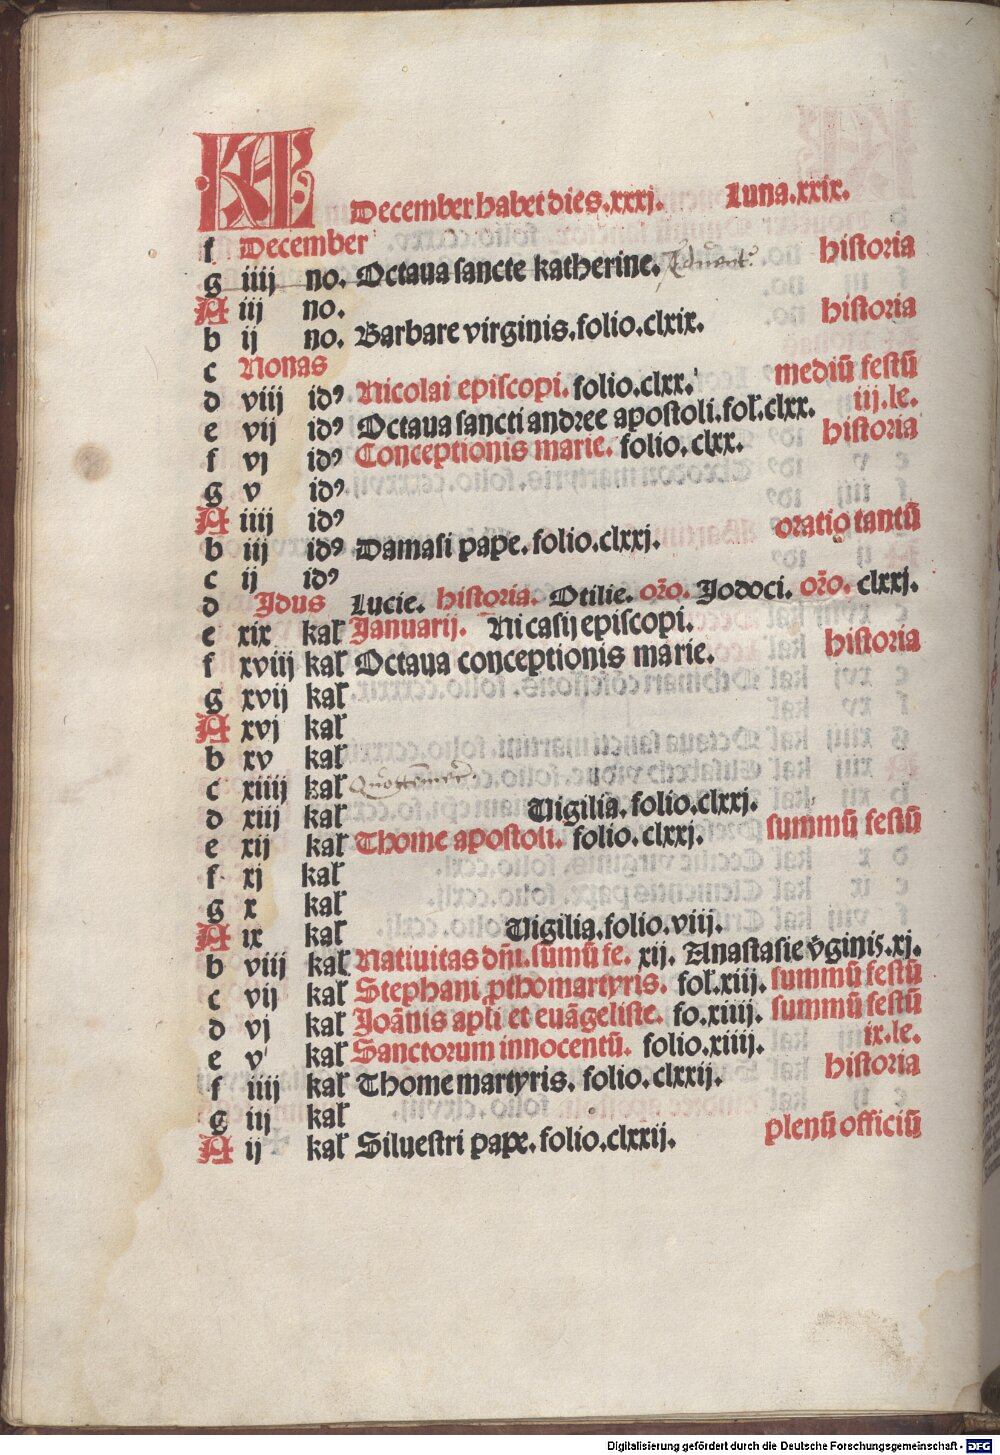 KL December habet dies.xxxj. Luna.xxix.
f December
g iiij no. Octaua sancte katherine. historia
A iij no.
b ij no. Barbare virginis.folio.clxix. historia
c Nonas
d viij idꝰ Nicolai episcopi. folio.clxx. mediū festū
e vij idꝰ Octaua sancti andree apostoli.fol̕.clxx. iij.le.
f vj idꝰ Conceptionis marie. folio.clxx. historia
g v idꝰ
A iiij idꝰ
b iij idꝰ Damasi pape. folio.clxxj. oratio tantū
c ij idꝰ
d Idus Lucie. historia. Otilie. or̄o. Jodoci. or̄o. clxxj.
e xix kal̕ Januarij. Nicasij episcopi.
f xviij kal̕ Octaua conceptionis marie. historia
g xvij kal̕
A xvj kal̕
b xv kal̕
c xiiij kal̕
d xiij kal̕ Vigilia.folio.clxxj.
e xij kal̕ Thome apostoli. folio.clxxj. summū festū
f xj kal̕
g x kal̕
A ix kal̕ Vigilia.folio.viij.
b viij kal̕ Natiuitas dn̄i.sum̄ū fe. xij. Anastasie v̄ginis.xj.
c vij kal̕ Stephani ꝓthomartyris. fol̕.xiij. summū festū
d vj kal̕ Joān̄is apl̄i et euāgeliste. fo.xiiij. summū festū
e v kal̕ Sanctorum innocentū. folio.xiiij. ix.le.
f iiij kal̕ Thome martyris. folio.clxxij. historia
g iij kal̕
A ij kal̕ Siluestri pape. folio.clxxij. plenū officiū
Digitalisierung gefördert durch die Deutsche Forschungsgemeinschaft - DFG